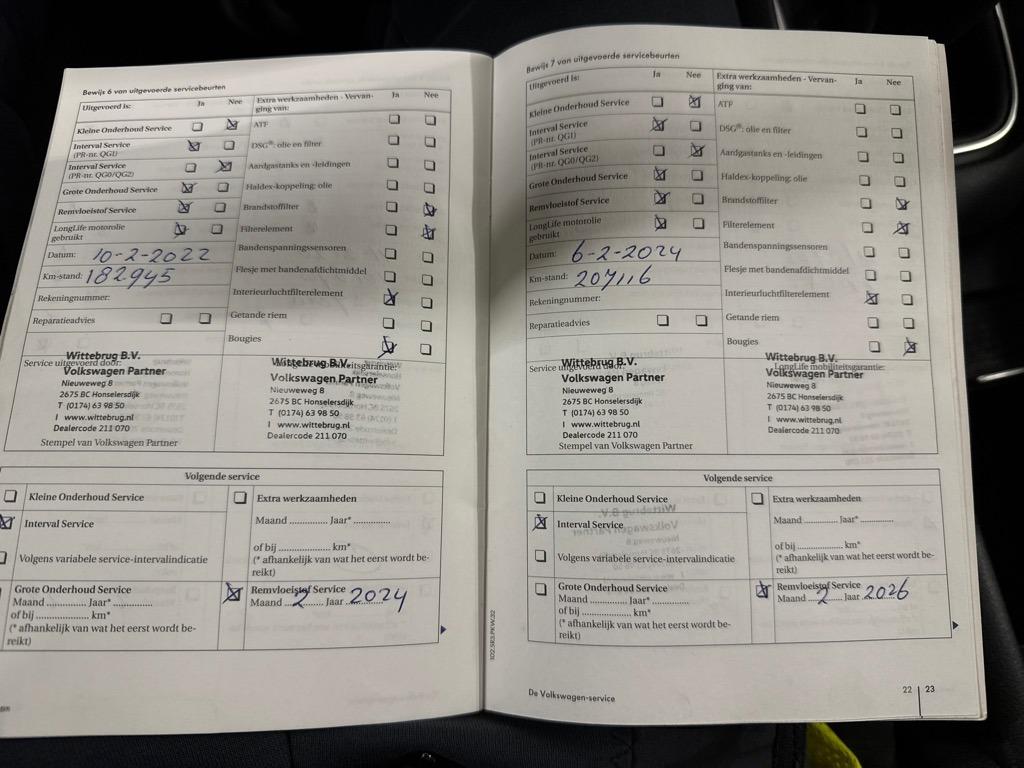 Bewijs 6 van uitgevoerde servicebeurten
Uitgevoerd is: Ja Nee
Kleine Onderhoud Service
Interval Service
(PR-nr. QG1)
Interval Service
(PR-nr. QG0/QG2)
Grote Onderhoud Service
Remvloeistof Service
LongLife motorolie
gebruikt
Datum: 10-2-2022
Km-stand: 182945
Rekeningnummer:
Reparatieadvies
Extra werkzaamheden - Vervan-
ging van: Ja Nee
ATF
DSG®: olie en filter
Aardgastanks en -leidingen
Haldex-koppeling: olie
Brandstoffilter
Filterelement
Bandenspanningssensoren
Flesje met bandenafdichtmiddel
Interieurluchtfilterelement
Getande riem
Bougies
Service uitgevoerd door:
Wittebrug B.V.
Volkswagen Partner
Nieuweweg 8
2675 BC Honselersdijk
T (0174) 63 98 50
I www.wittebrug.nl
Dealercode 211 070
Stempel van Volkswagen Partner
LongLife mobiliteitsgarantie:
Wittebrug B.V.
Volkswagen Partner
Nieuweweg 8
2675 BC Honselersdijk
T (0174) 63 98 50
I www.wittebrug.nl
Dealercode 211 070
Volgende service
Kleine Onderhoud Service
Interval Service
Volgens variabele service-intervalindicatie
Grote Onderhoud Service
Maand .............. Jaar* ..............
of bij .............. km*
(* afhankelijk van wat het eerst wordt be-
reikt)
Extra werkzaamheden
Maand .............. Jaar* ..............
of bij .............. km*
(* afhankelijk van wat het eerst wordt be-
reikt)
Remvloeistof Service
Maand 2 Jaar 2024
Bewijs 7 van uitgevoerde servicebeurten
Uitgevoerd is: Ja Nee
Kleine Onderhoud Service
Interval Service
(PR-nr. QG1)
Interval Service
(PR-nr. QG0/QG2)
Grote Onderhoud Service
Remvloeistof Service
LongLife motorolie
gebruikt
Datum: 6-2-2024
Km-stand: 207116
Rekeningnummer:
Reparatieadvies
Extra werkzaamheden - Vervan-
ging van: Ja Nee
ATF
DSG®: olie en filter
Aardgastanks en -leidingen
Haldex-koppeling: olie
Brandstoffilter
Filterelement
Bandenspanningssensoren
Flesje met bandenafdichtmiddel
Interieurluchtfilterelement
Getande riem
Bougies
Service uitgevoerd door:
Wittebrug B.V.
Volkswagen Partner
Nieuweweg 8
2675 BC Honselersdijk
T (0174) 63 98 50
I www.wittebrug.nl
Dealercode 211 070
Stempel van Volkswagen Partner
LongLife mobiliteitsgarantie:
Wittebrug B.V.
Volkswagen Partner
Nieuweweg 8
2675 BC Honselersdijk
T (0174) 63 98 50
I www.wittebrug.nl
Dealercode 211 070
Volgende service
Kleine Onderhoud Service
Interval Service
Volgens variabele service-intervalindicatie
Grote Onderhoud Service
Maand .............. Jaar* ..............
of bij .............. km*
(* afhankelijk van wat het eerst wordt be-
reikt)
Extra werkzaamheden
Maand .............. Jaar* ..............
of bij .............. km*
(* afhankelijk van wat het eerst wordt be-
reikt)
Remvloeistof Service
Maand 2 Jaar 2026
De Volkswagen-service 22 23